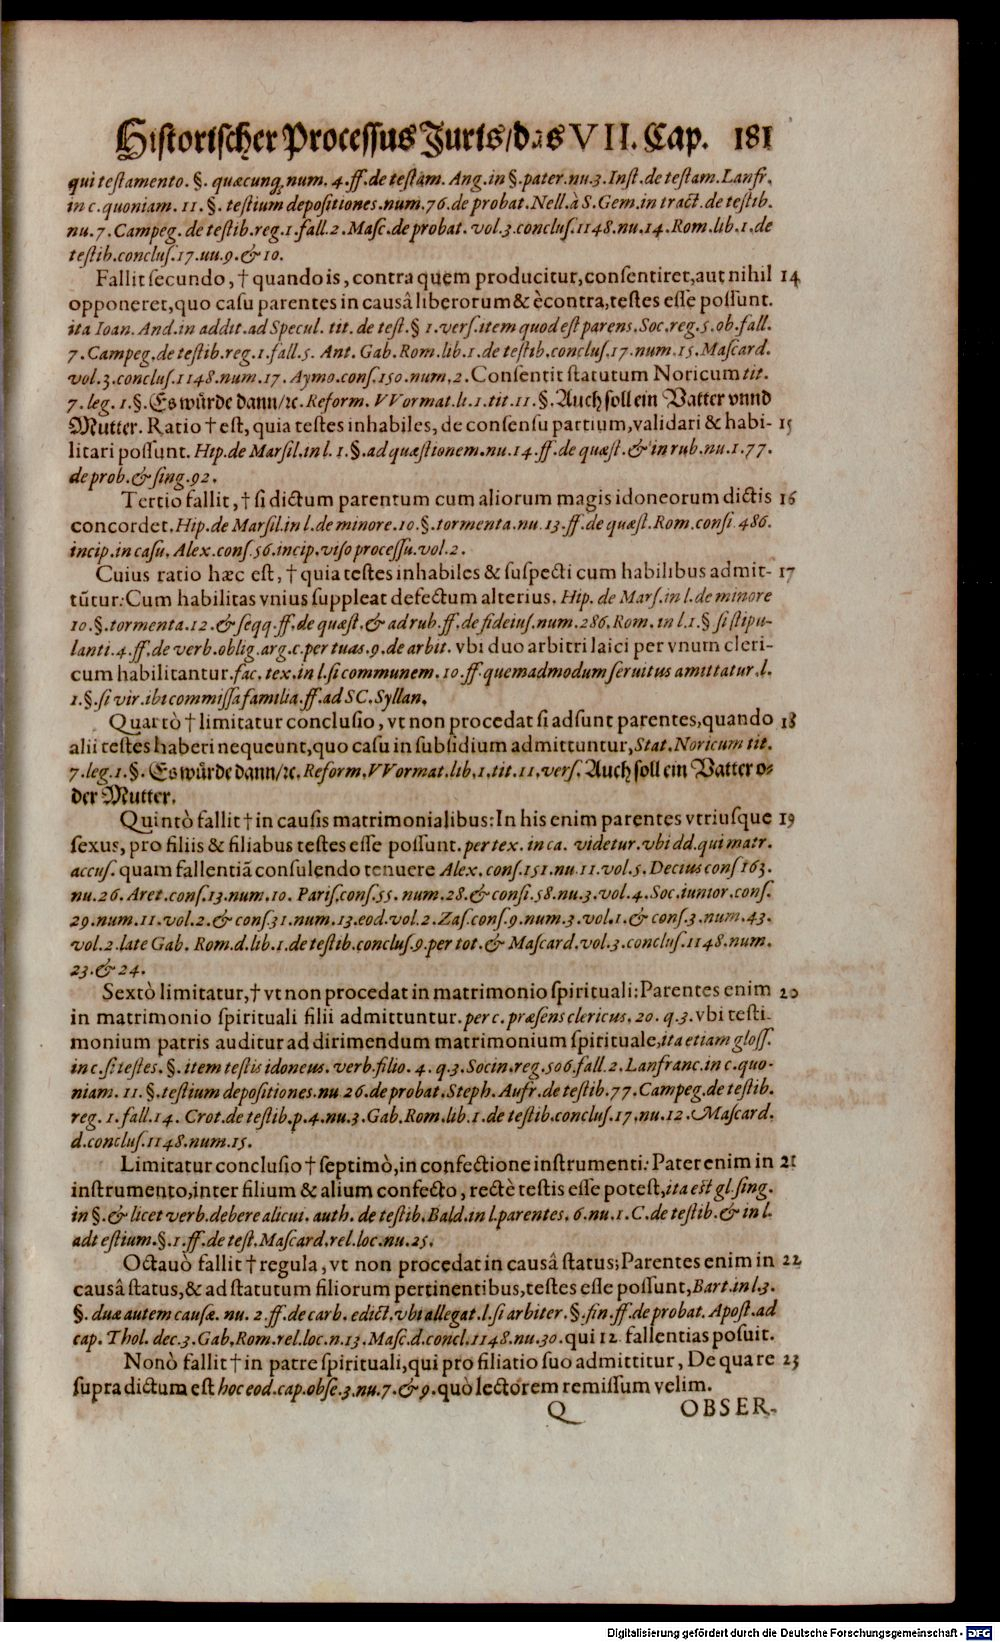 Historischer Processus Juris/das VII. Cap. 181
qui testamento. §. quæcunq; num. 4. ff. de testam. Ang. in §. pater. nu. 3. Inst. de testam. Lanfr.
in c. quoniam. 11. §. testium depositiones. num. 76. de probat. Nell. à S. Gem. in tract. de testib.
nu. 7. Campeg. de testib. reg. 1. fall. 2. Masc. de probat. vol. 3. conclus. 1148. nu. 14. Rom. lib. 1. de
testib. conclus. 17. uu. 9. & 10.
Fallit secundo, † quando is, contra quem producitur, consentiret, aut nihil 14
opponeret, quo casu parentes in causâ liberorum & ècontra, testes esse possunt.
ita Ioan. And. in addit. ad Specul. tit. de test. § 1. vers. item quod est parens, Soc. reg. 5. ob. fall.
7. Campeg. de testib. reg. 1. fall. 5. Ant. Gab. Rom. lib. 1. de testib. conclus. 17. num. 15. Mascard.
vol. 3. conclus. 1148. num. 17. Aymo. cons. 150. num. 2. Consentit statutum Noricum tit.
7. leg. 1. §. Es würde dann/ꝛc. Reform. VVormat. li. 1. tit. 11. §. Auch soll ein Vatter vnnd
Mutter. Ratio † est, quia testes inhabiles, de consensu partium, validari & habi- 15
litari possunt. Hip. de Marsil. in l. 1. §. ad quæstionem. nu. 14. ff. de quæst. & in rub. nu. 1. 77.
de prob. & sing. 92.
Tertio fallit, † si dictum parentum cum aliorum magis idoneorum dictis 16
concordet. Hip. de Marsil. in l. de minore. 10. §. tormenta. nu. 13. ff. de quæst. Rom. consi. 486.
incip. in casu. Alex. cons. 56. incip. viso processu. vol. 2.
Cuius ratio hæc est, † quia testes inhabiles & suspecti cum habilibus admit- 17
tūtur: Cum habilitas vnius suppleat defectum alterius. Hip. de Mars. in l. de minore
10. §. tormenta. 12. & seqq. ff. de quæst. & ad rub. ff. de fideius. num. 286. Rom. in l. 1. § si stipu-
lanti. 4. ff. de verb. oblig. arg. c. per tuas. 9. de arbit. vbi duo arbitri laici per vnum cleri-
cum habilitantur. fac. tex. in l. si communem. 10. ff. quemadmodum seruitus amittatur. l.
1. §. si vir. ibi commissa familia. ff. ad SC. Syllan.
Quartò † limitatur conclusio, vt non procedat si adsunt parentes, quando 18
alii testes haberi nequeunt, quo casu in subsidium admittuntur, Stat. Noricum tit.
7. leg. 1. §. Es würde dann/ꝛc. Reform. VVormat. lib. 1. tit. 11. vers. Auch soll ein Vatter o-
der Mutter.
Quintò fallit † in causis matrimonialibus: In his enim parentes vtriusque 19
sexus, pro filiis & filiabus testes esse possunt. per tex. in ca. videtur. vbi dd. qui matr.
accus. quam fallentiā consulendo tenuere Alex. cons. 151. nu. 11. vol. 5. Decius cons 163.
nu. 26. Aret. cons. 13. num. 10. Paris. cons. 55. num. 28. & consi. 58. nu. 3. vol. 4. Soc. iunior. cons.
29. num. 11. vol. 2. & cons. 31. num. 13. eod. vol. 2. Zas. cons. 9. num. 3. vol. 1. & cons. 3. num. 43.
vol. 2. late Gab. Rom. d. lib. 1. de testib. conclus. 9. per tot. & Mascard. vol. 3. conclus. 1148. num.
23. & 24.
Sextò limitatur, † vt non procedat in matrimonio spirituali: Parentes enim 20
in matrimonio spirituali filii admittuntur. per c. præsens clericus. 20. q. 3. vbi testi-
monium patris auditur ad dirimendum matrimonium spirituale, ita etiam gloss.
in c. si testes. §. item testis idoneus. verb. filio. 4. q. 3. Socin. reg. 506. fall. 2. Lanfranc. in c. quo-
niam. 11. §. testium depositiones. nu 26. de probat. Steph. Aufr. de testib. 77. Campeg. de testib.
reg. 1. fall. 14. Crot. de testib. p. 4. nu. 3. Gab. Rom. lib. 1. de testib. conclus. 17. nu. 12. Mascard.
d. conclus. 1148. num. 15.
Limitatur conclusio † septimò, in confectione instrumenti: Pater enim in 21
instrumento, inter filium & alium confecto, rectè testis esse potest, ita est gl. sing.
in §. & licet verb. debere alicui. auth. de testib. Bald. in l. parentes. 6. nu. 1. C. de testib. & in l.
adt estium. §. 1. ff. de test. Mascard. rel. loc. nu. 25.
Octauò fallit † regula, vt non procedat in causâ status; Parentes enim in 22
causâ status, & ad statutum filiorum pertinentibus, testes esse possunt, Bart. in l. 3.
§. duæ autem causæ. nu. 2. ff. de carb. edict. vbi allegat. l. si arbiter. §. fin. ff. de probat. Apost. ad
cap. Thol. dec. 3. Gab. Rom. rel. loc. n. 13. Masc. d. concl. 1148. nu. 30. qui 12 fallentias posuit.
Nonò fallit † in patre spirituali, qui pro filiatio suo admittitur, De qua re 23
supra dictum est hoc eod. cap. obse. 3. nu. 7. & 9. quò lectorem remissum velim.
Q OBSER-
Digitalisierung gefördert durch die Deutsche Forschungsgemeinschaft - DFG